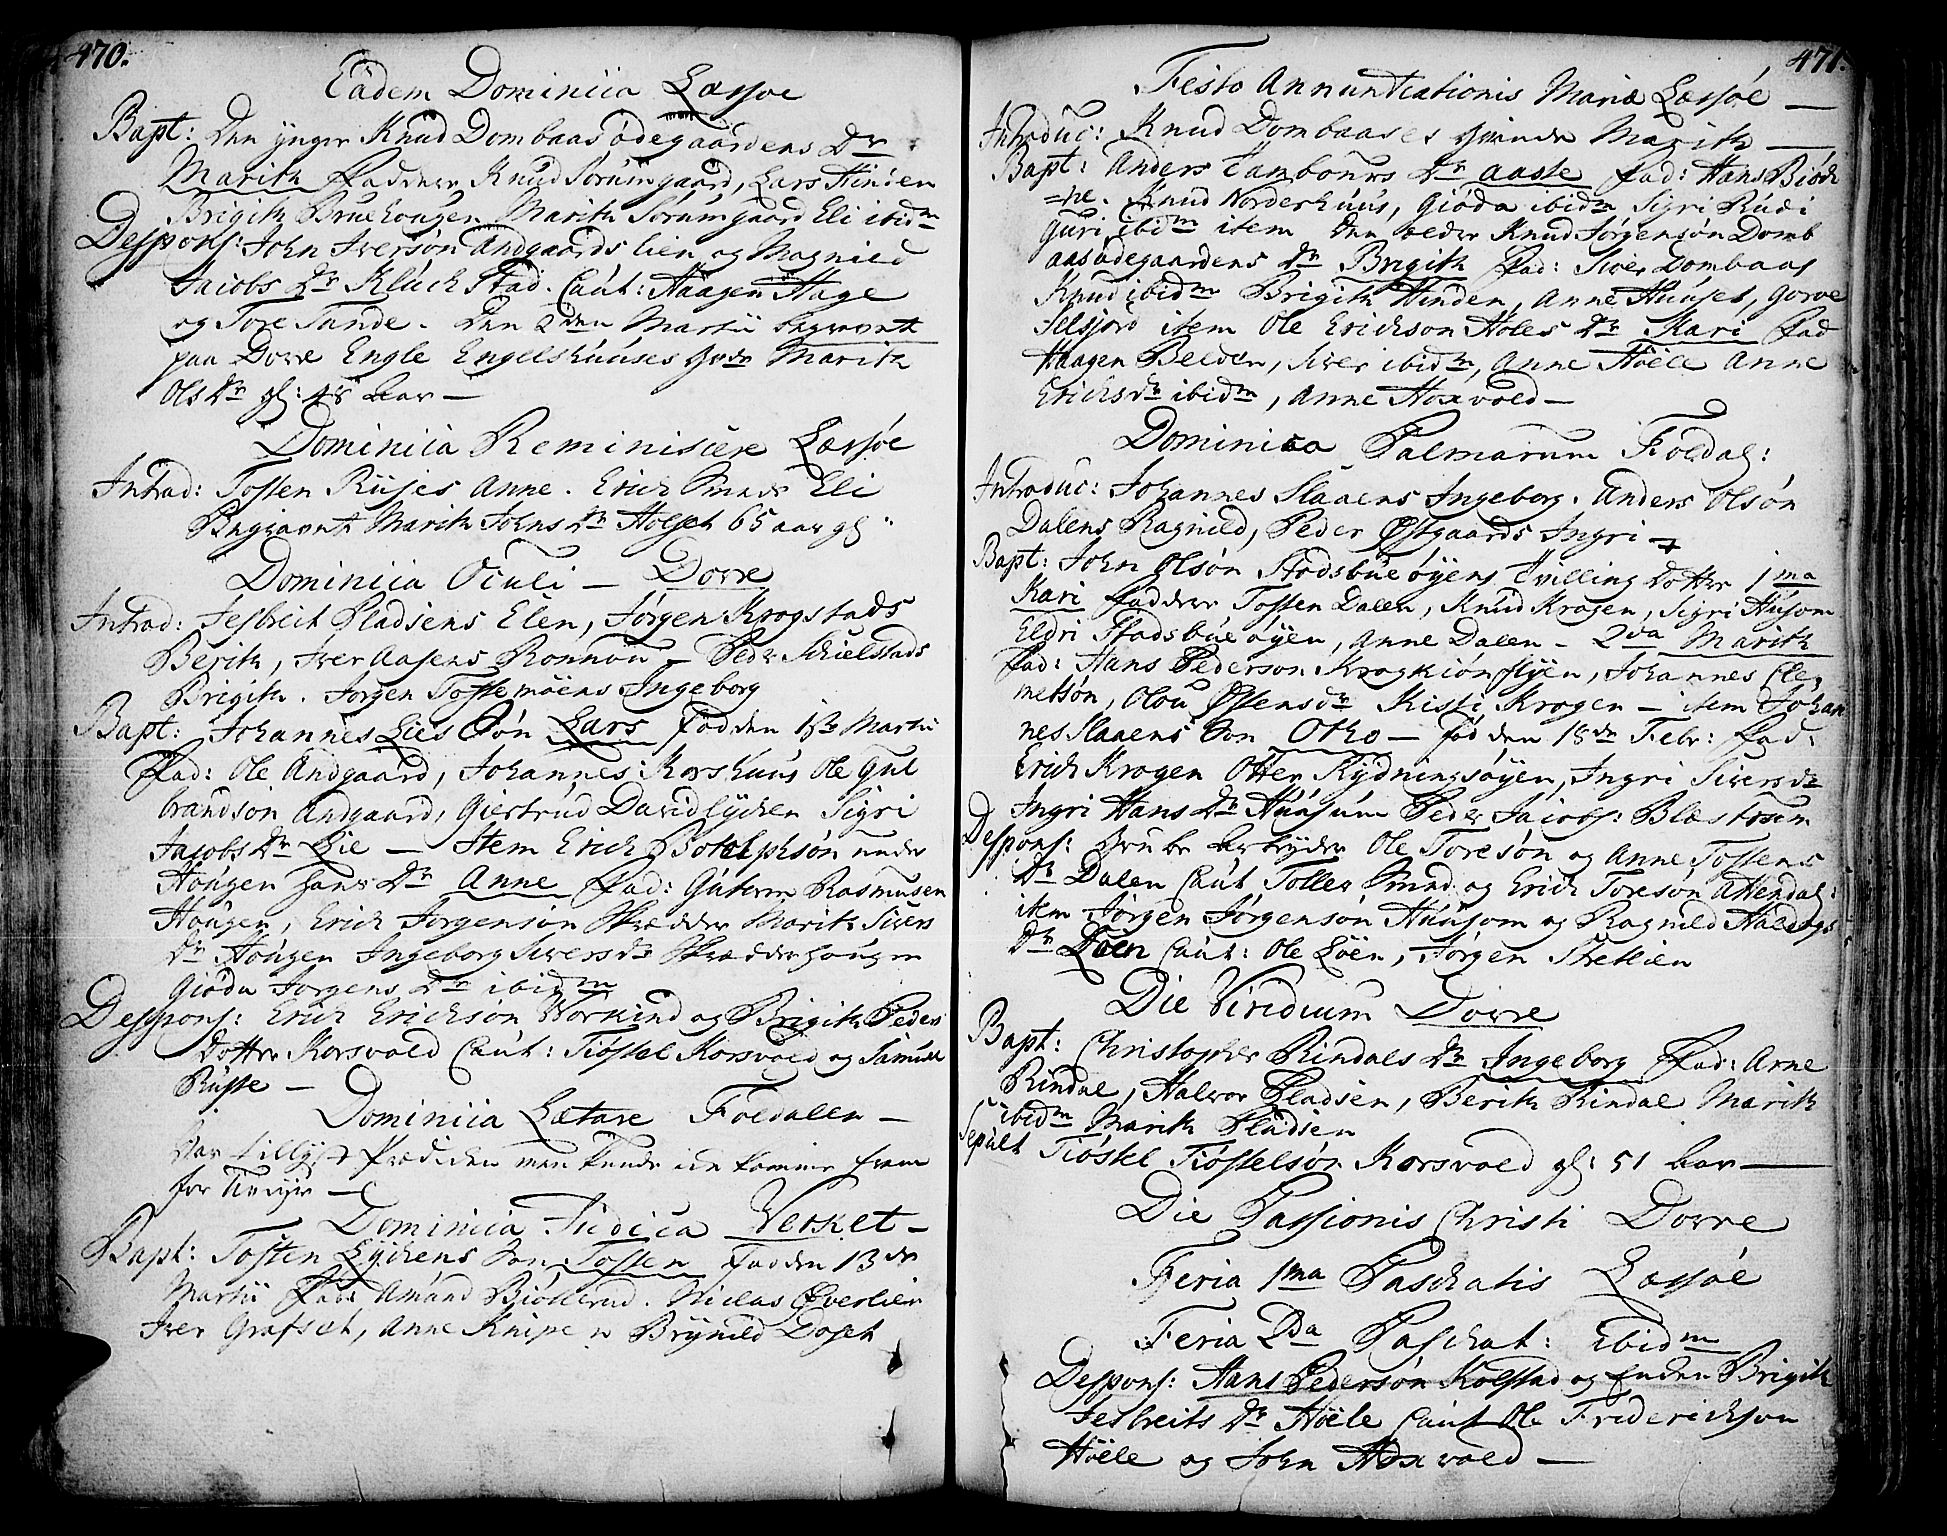 470.
Eâdem Dominiia Læssøe
Bapt: Den ÿngre Knud Dombaasødegaardens Dr
Marith Faddere Knud Sørumgaard, Lars Hinden
Brigith Bruehougen Marith Sørumgaard Eli ibidm
Despons: John Iversøn Andgaards lien og Magnild
Jacobs Dr Kluchstad. Caut: Haagen Hage
og Tore Sande. Den 2den Martii begravet
paa Dovre Engle Engelshuuses Marith
Ols Dr gl: 48 Aar —
Dominiia Reminiscere Læssøe
Introd: Tosten Rüses Anne. Erich Smeds Eli
Begravet Marith Johns Dr Holset 65 aar gl:
Dominiia Oculi — Dovre
Introd: Jesbreit Pladsens Elen, Jørgen Krogstads
Berith, Iver Aasens Ronnou — Peder Schielstads
Brigith. Jørgen Tostemoens Ingeborg
Bapt: Johannes Lies Søn Lars fød den Martii
Fad: Ole Andgaard, Johannes Korshuus Ole Gul
brandsøn Andgaard, Giertrud Davidlÿcken Sigri
Jacobs Dr Lie — Item Erich Botolphsøn neder
Hougen hans Dr Anne Fad: Gutorm Rasmusen
Hougen, Erich Jørgensøn Skredder Marith Sivers
Dr Hougen Ingeborg Sivers Dr Skrædderhougen
Giöda Jørgens Dr ibidm
Despons: Erich Erichsøn Workind og Brigith Peders
Dotter Korsvold Caut: Tiøstel Korsvold og Samuel
Rüsse —
Dominiia Lætare Foldalen —
Var tillÿst Prædiken men kunde icke komme frem
for Uveÿr —
Dominiia Judica Verket —
Bapt: Tosten Lÿckens Søn Tosten fød den 13de
Martii Fad: Amund Biöllerud. Niclas Øverlien
Iver Grafset, Anne Knipe Brÿnild Doset
471.
Festo Annuntiationis Mariæ Læssøe —
Introduc: Knud Dombaases Qvinde Marith —
Bapt: Anders Tambours Dr Aaste Fad: Hans Biöch
=ne. Knud Norderhuus, Giöda ibidm Sigri Rudi
Guri ibidm item Den ælder Knud Jørgensøn Domb
aasødegaardens Dr Brigith Fad: Siver Dombaas
Knud ibidm Brigith Hinden, Anne Huuses, Gorve
Selsjord item Ole Erichson Holes Dr Kari Fad
Haagen Belden, Siver ibidm, Anne Høele Anne
Erichs Dr ibidm, Anne Hoxvold —
Dominica Palmarum Foldal:
Introduc: Johannes Slaaens Ingeborg. Anders Olsøn
Dalens Ragnild, Peder Østgaards Ingri —
Bapt: John Olsøn Stadsbueøÿens Tvilling Dotter 1ma
Kari Faddere Tosten Dalen, Knud Krogen, Sigri Husom
Eldri Stadsbueøÿen, Anne Dalen — 2da Marith
Fad: Hans Pederson Krogkiönflÿen, Johannes Cle,
metsøn, Olou Østens Dr Kisti Krogen — item Johan
nes Slaaens Søn Otho — fød den 18de Febr: Fad:
Erich Krogen Otter Rÿdningsøÿen, Ingri Sivers Dr
Ingri Hans Dr Huusum Peder Jacobs: Blæstrem
Despons: Ole Toresøn og Anne Tostens
Dr Dalen Caut Tolles Smed og Erich Toresøn Attendal:
item Jørgen Jørgensøn Huusom og Ragnild Haldogs
Dr Løen Caut: Ole Løen, Jørgen Stetlien
Die Viridium Dovre
Bapt: Christopher Rindals Dr Ingeborg Fad: Arne
Rindal, Halvor Pladsen, Berith Rindal Marith
ibidm Marith Pladsen
Sepult Tiöstel Tiöstelsøn Korsvold gl: 51 Aar —
Die Passionis Christi Dovre
Feria 1ma Paschatis Læssøe
Feria 2da Paschat: Ibidm
Despons: Hans Pedersøn Kolstad og Enken Brigith
Jesbreits Dr Høele Caut Ole Friderichson
Høele og John Hoxvold —